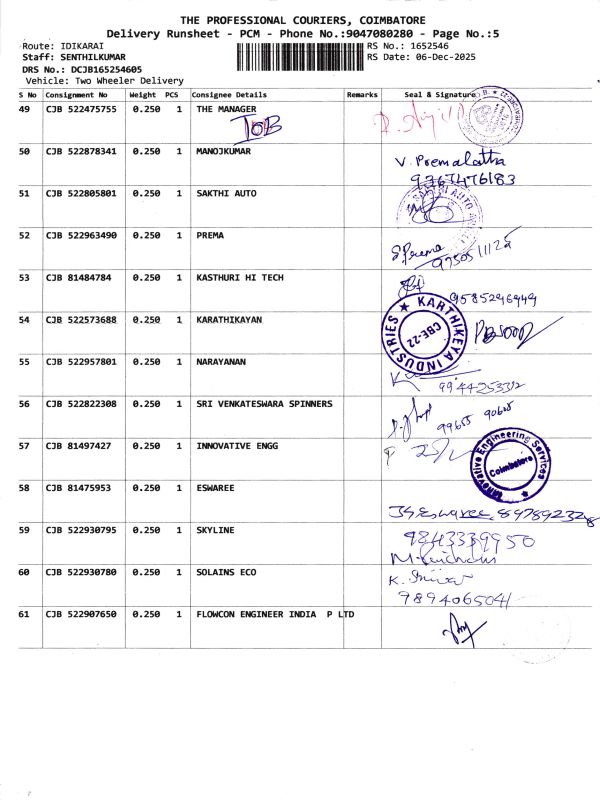 THE PROFESSIONAL COURIERS, COIMBATORE
Delivery Runsheet - PCM - Phone No.:9047080280 - Page No.:5
Route: IDIKARAI RS No.: 1652546
Staff: SENTHILKUMAR RS Date: 06-Dec-2025
DRS No.: DCJB165254605
Vehicle: Two Wheeler Delivery
S No Consignment No Weight PCS Consignee Details Remarks Seal & Signature
49 CJB 522475755 0.250 1 THE MANAGER
TOB
50 CJB 522878341 0.250 1 MANOJKUMAR V. Premalatha
9367476183
51 CJB 522805801 0.250 1 SAKTHI AUTO
SAKTHI AUTO
52 CJB 522963490 0.250 1 PREMA S. Prema
53 CJB 81484784 0.250 1 KASTHURI HI TECH
9585296949
54 CJB 522573688 0.250 1 KARATHIKAYAN KARTHIKEYA INDUSTRIES ★ CBE-22
55 CJB 522957801 0.250 1 NARAYANAN
56 CJB 522822308 0.250 1 SRI VENKATESWARA SPINNERS
99655 90605
57 CJB 81497427 0.250 1 INNOVATIVE ENGG Innovative Engineering Services ★ Coimbatore
58 CJB 81475953 0.250 1 ESWAREE
Eswaree
59 CJB 522930795 0.250 1 SKYLINE 9843339950
60 CJB 522930780 0.250 1 SOLAINS ECO
9894065041
61 CJB 522907650 0.250 1 FLOWCON ENGINEER INDIA P LTD